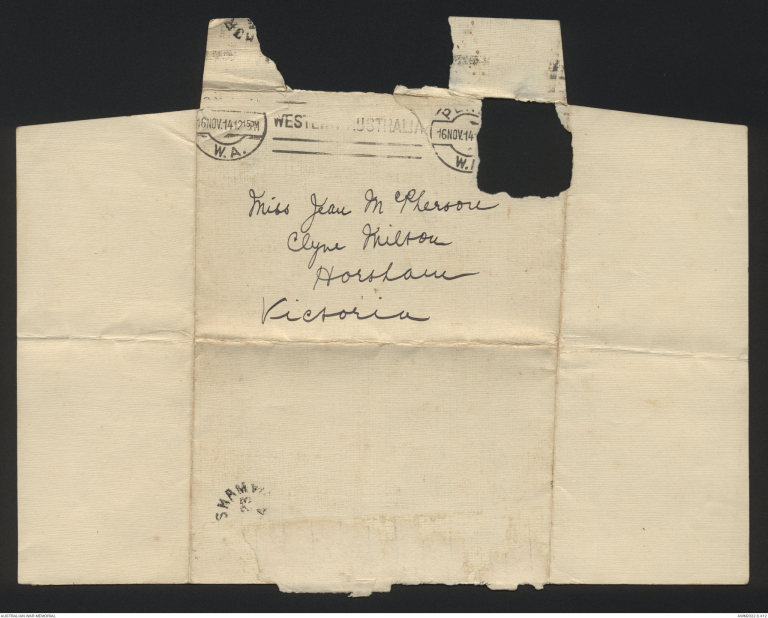 16NOV.14 1215PM
W.A.
WESTERN AUSTRALIA
16NOV.14
W.
Miss Jean McPherson
Clyne Milton
Horsham
Victoria
AUSTRALIAN WAR MEMORIAL